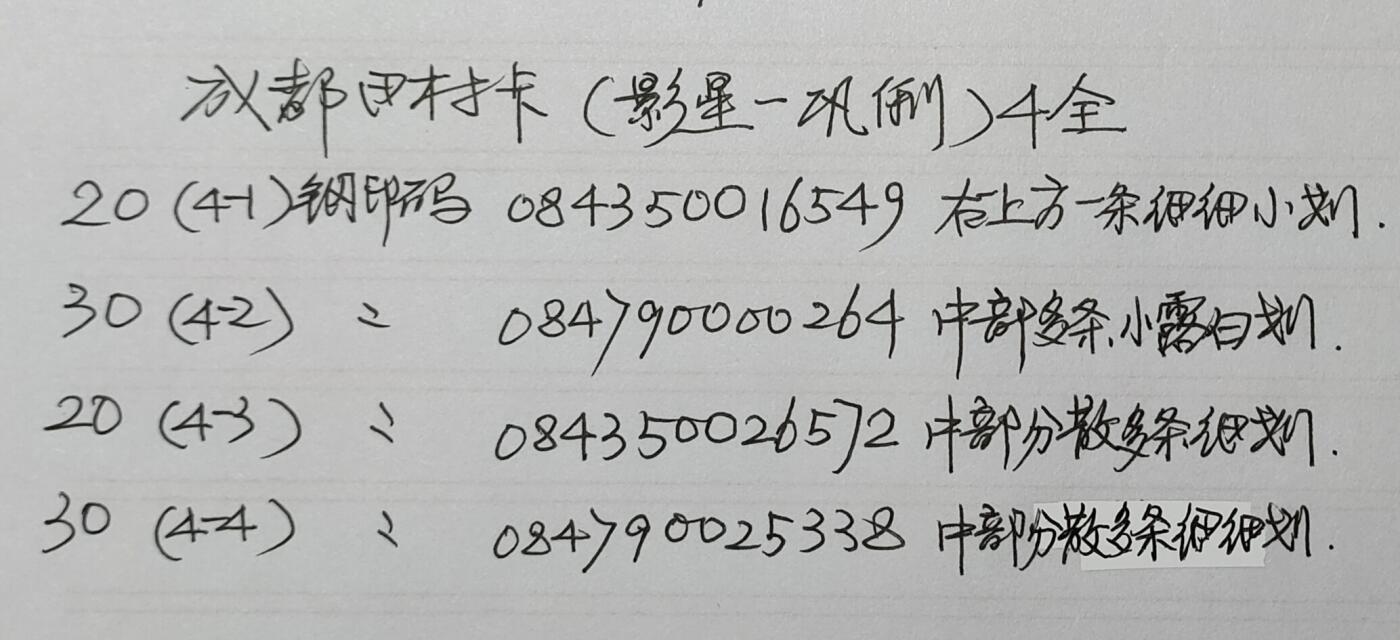 成都田村卡(影星一巩俐)4全
20(4-1)钢印码 084350016549 右上方一条细细小划.
30(4-2) 〃 084790000264 中部多条小露白划.
20(4-3) 〃 084350026572 中部分散多条细划.
30(4-4) 〃 084790025338 中部分散多条细细划.